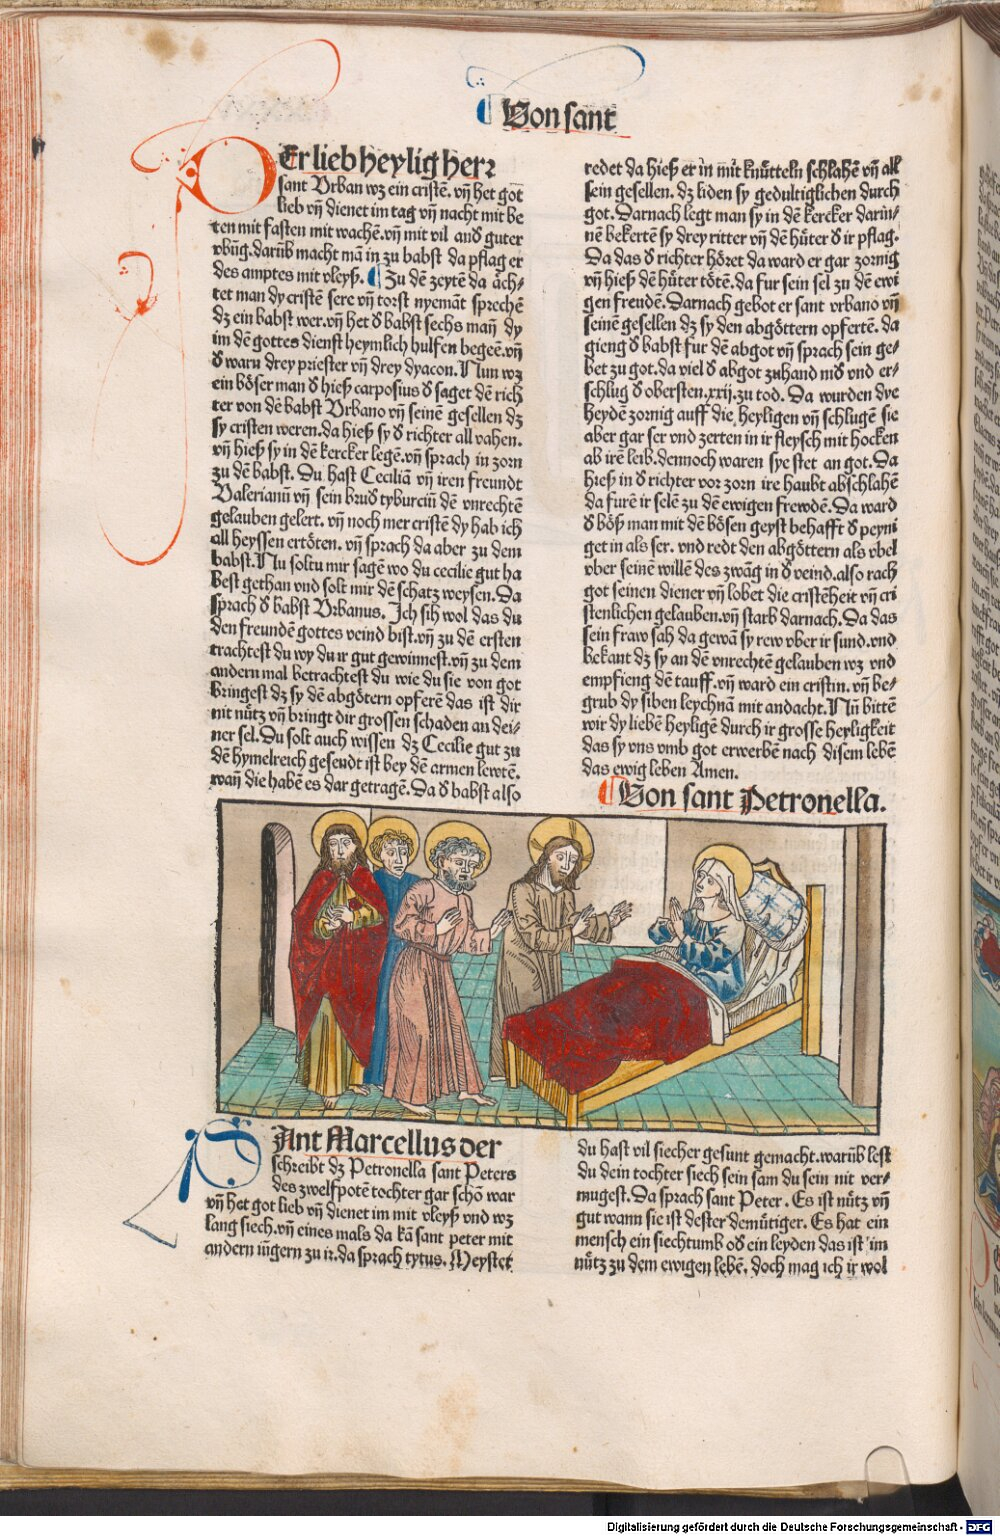 Von sant
DEr lieb heylig herꝛ
sant Vrban wz ein cristē. vn̄ het got
lieb vn̄ dienet im tag vn̄ nacht mit be
ten mit fasten mit wachē. vn̄ mit vil and guter
vbūg. darūb macht mā in zu babst da pflag er
des amptes mit vleyß. Zu dē zeytē da ach-
tet man dy cristē sere vn̄ torst nyemāt sprechē
dz ein babst wer. vn̄ het d babst sechs man̄ dy
im dē gottes dienst heymlich hulfen begeē. vn̄
d warn drey priester vn̄ drey dyacon. Nun wz
ein böser man d hieß carposius d saget dē rich
ter von dē babst Vrbano vn̄ seinē gesellen dz
sy cristen weren. da hieß sy d richter all vahen.
vn̄ hieß sy in dē kercker legē. vn̄ sprach in zorn
zu dē babst. Du hast Ceciliā vn̄ iren freundt
Valerianū vn̄ sein brud tyburciū dē vnrechtē
gelauben gelert. vn̄ noch mer cristē dy hab ich
all heyssen ertöten. vn̄ sprach da aber zu dem
babst. Nu soltu mir sagē wo du cecilie gut ha
best gethan vnd solt mir dē schatz weysen. Da
sprach d babst Vrbanus. Jch sih wol das du
den freundē gottes veind bist. vn̄ zu dē ersten
trachtest du wy du ir gut gewinnest. vn̄ zu dem
andern mal betrachtest du wie du sie von got
bringest dz sy dē abgötern opferē das ist dir
nit nütz vn̄ bringt dir grossen schaden an dei-
ner sel. Du solt auch wissen dz Cecilie gut zu
dē hymelreich gesendt ist bey dē armen lewtē.
wan̄ die habē es dar getragē. Da d babst also
redet da hieß er in mit knütteln schlahē vn̄ all
sein gesellen. dz liden sy gedultiglichen durch
got. Darnach legt man sy in dē kercker darin-
nē bekertē sy drey ritter vn̄ dē hüter d ir pflag.
Da das d richter höret da ward er gar zornig
vn̄ hieß dē hüter tötē. da fur sein sel zu dē ewi
gen freudē. Darnach gebot er sant vrbano vn̄
seinē gesellen dz sy den abgöttern opfertē. da
gieng d babst fur dē abgot vn̄ sprach sein ge-
bet zu got. da viel d abgot zuhand nid vnd er-
schlug d obersten. xxij. zu tod. Da wurden dye
heydē zornig auff die heyligen vn̄ schlugē sie
aber gar ser vnd zerten in ir fleysch mit hocken
ab irē leib. dennoch waren sye stet an got. Da
hieß in d richter vor zorn ire haubt abschlahē
da furē ir selē zu dē ewigen frewdē. Da ward
d böß man mit dē bösen geyst behafft d peyni
get in als ser. vnd redt den abgöttern als vbel
vber seinē willē des zwāg in d veind. also rach
got seinen diener vn̄ lobet die cristēheit vn̄ cri
stenlichen gelauben. vn̄ starb darnach. Da das
sein fraw sah da gewā sy rew vber ir sund. vnd
bekant dz sy an dē vnrechtē gelauben wz vnd
empfieng dē tauff. vn̄ ward ein cristin. vn̄ be-
grub dy siben leychnā mit andacht. Nū bittē
wir dy liebē heyligē durch ir grosse heyligkeit
das sy vns vmb got erwerbē nach disem lebē
das ewig leben Amen.
Von sant Petronella.
SAnt Marcellus der
schreibt dz Petronella sant Peters
des zwelfpotē tochter gar schō war
vn̄ het got lieb vn̄ dienet im mit vleyß vnd wz
lang siech. vn̄ eines mals da kā sant peter mit
andern iūgern zu ir. da sprach tytus. Meyster
du hast vil siecher gesunt gemacht. warūb lest
du dein tochter siech sein sam du sein nit ver-
mugest. Da sprach sant Peter. Es ist nütz vn̄
gut wann sie ist dester demütiger. Es hat ein
mensch ein siechtumb od ein leyden das ist im
nütz zu dem ewigen lebē. doch mag ich ir wol
Digitalisierung gefördert durch die Deutsche Forschungsgemeinschaft - DFG